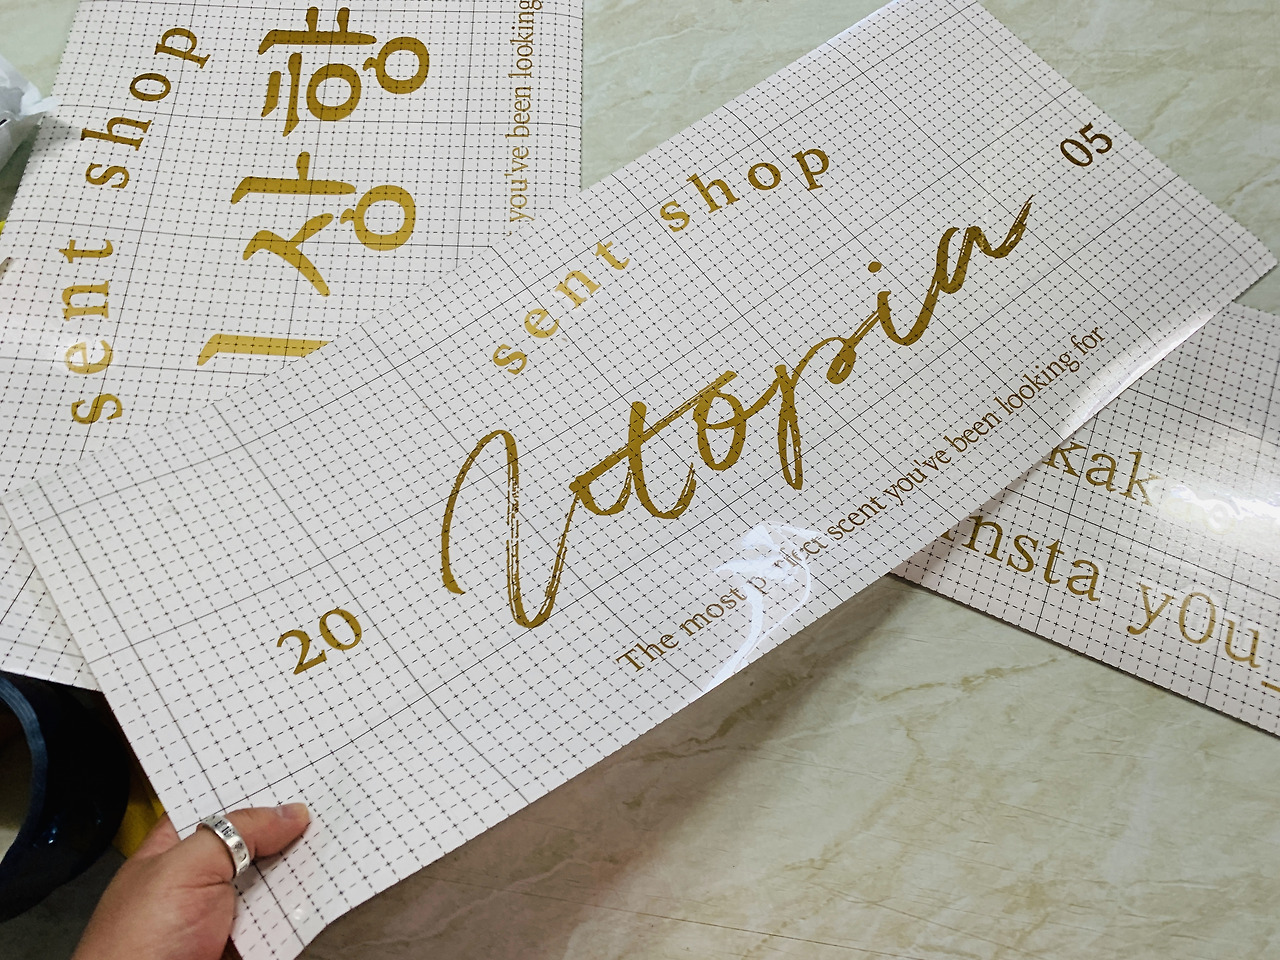 sent shop
상향
you've been looking
sent shop
20 Utopia 05
The most perfect scent you've been looking for
kak
insta y0u_